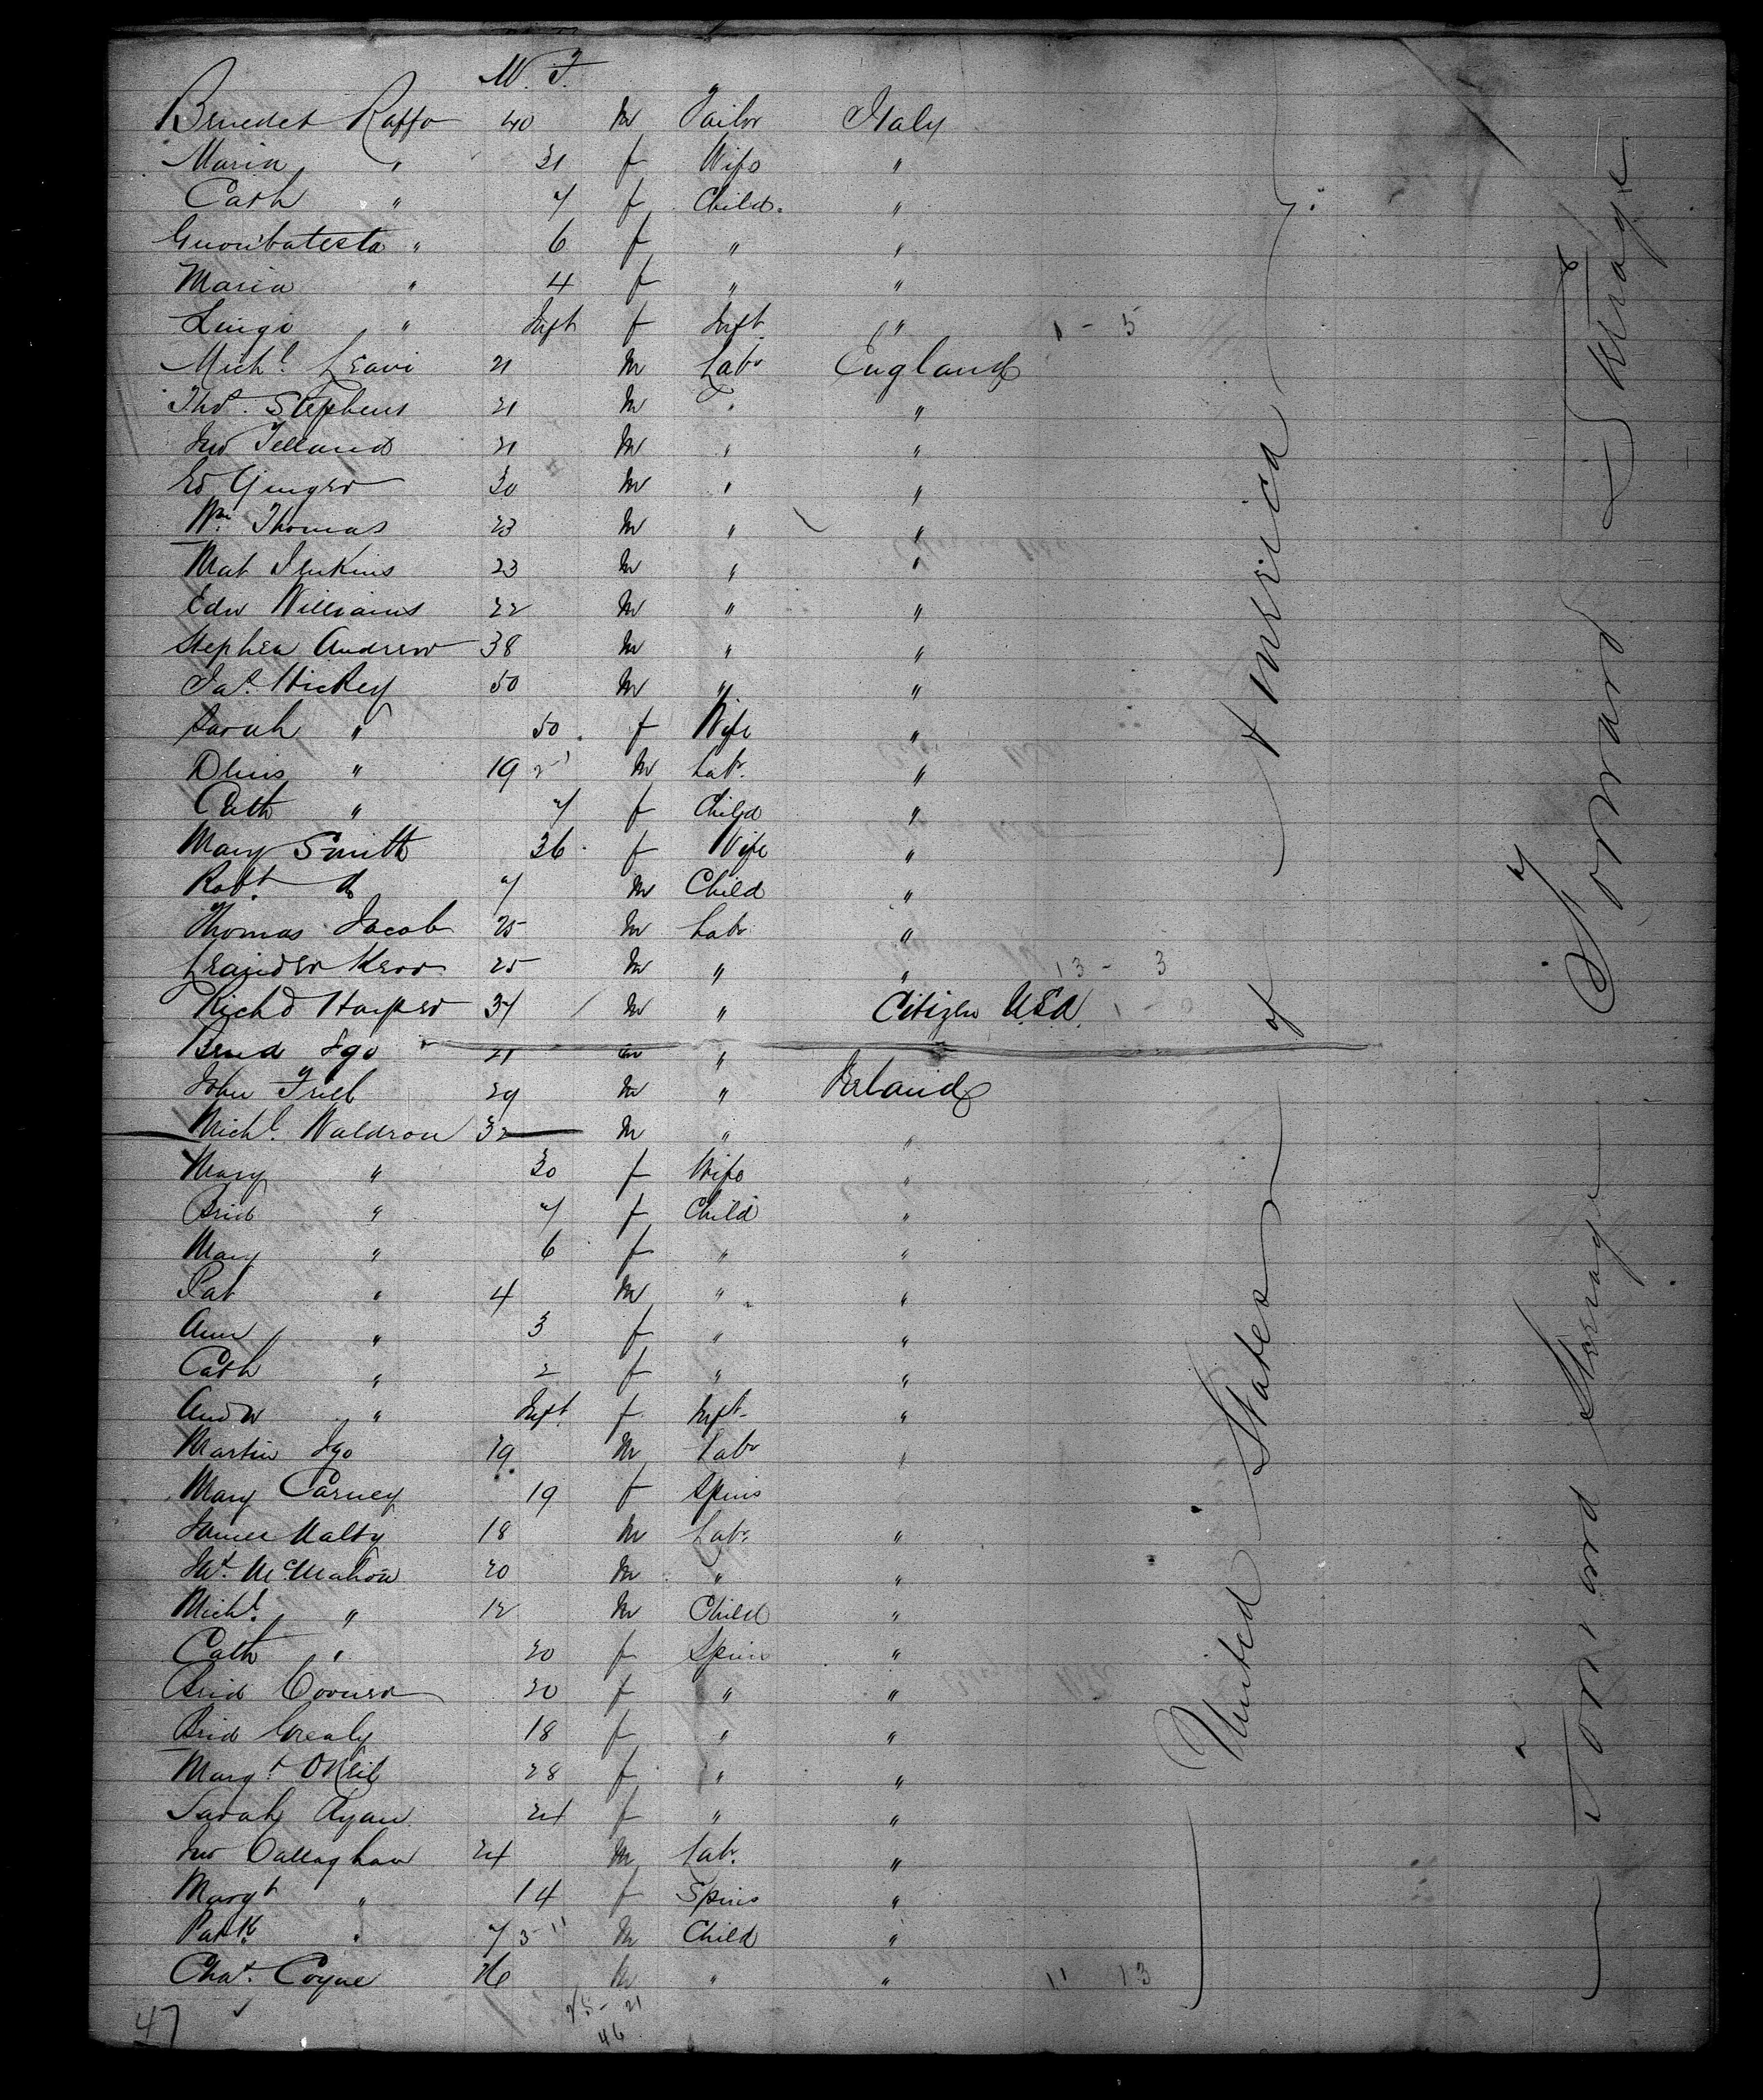 M. F.
Benedet Raffo 40 M Tailor Italy
Maria " 31 f Wife "
Cath " 7 f Child. "
Guovibatesta " 6 f " "
Maria " 4 f " "
Luigi " Inft f Inft " 1 - 5
Michl. Leavi 21 M Labr England
Thos. Stephens 21 M " "
Jno Telland 21 M " "
Ed Ginger 30 M " "
Wm. Thomas 23 M " "
Mat Jenkins 23 M " "
Edw Williams 22 M " "
Stephen Andrew 38 M " "
Jas. Hickey 50 M " "
Sarah " 50 f Wife "
" 19 M Labr. "
Cath " 7 f Child "
Mary Smith 36 f Wife "
Robt. do 7 M Child "
Thomas Jacob 25 M Labr "
Leander Kerr 25 M " " 13 - 3
Richd Harper 37 M " Citizen U.S.A. 1 - 0
Brnd Igo 21 M "
John Friel 29 M " Ireland
Michl. Waldron 32 M " "
Mary " 30 f Wife "
Brid " 7 f Child "
Mary " 6 f " "
Pat " 4 M " "
Ann " 3 f " "
Cath " 2 f " "
Andw " Inft f Inft "
Martin Igo 19 M Labr "
Mary Carney 19 f Spins
James Malty 18 M Labr. "
McMahon 20 M " "
Michl. " 12 M Child "
Cath " 20 f Spins "
Brid 20 f " "
Brid Grealy 18 f " "
Margt. ONeil 28 f " "
Sarah Ryan 24 f " "
Jno Callaghan 24 M Labr. "
Margt " 14 f Spins "
Patk. " 7 M Child "
Chas. Coyne 26 M " " 11 13
25 - 21
46
47
United States of America
Forward Steerage
Forward Steerage